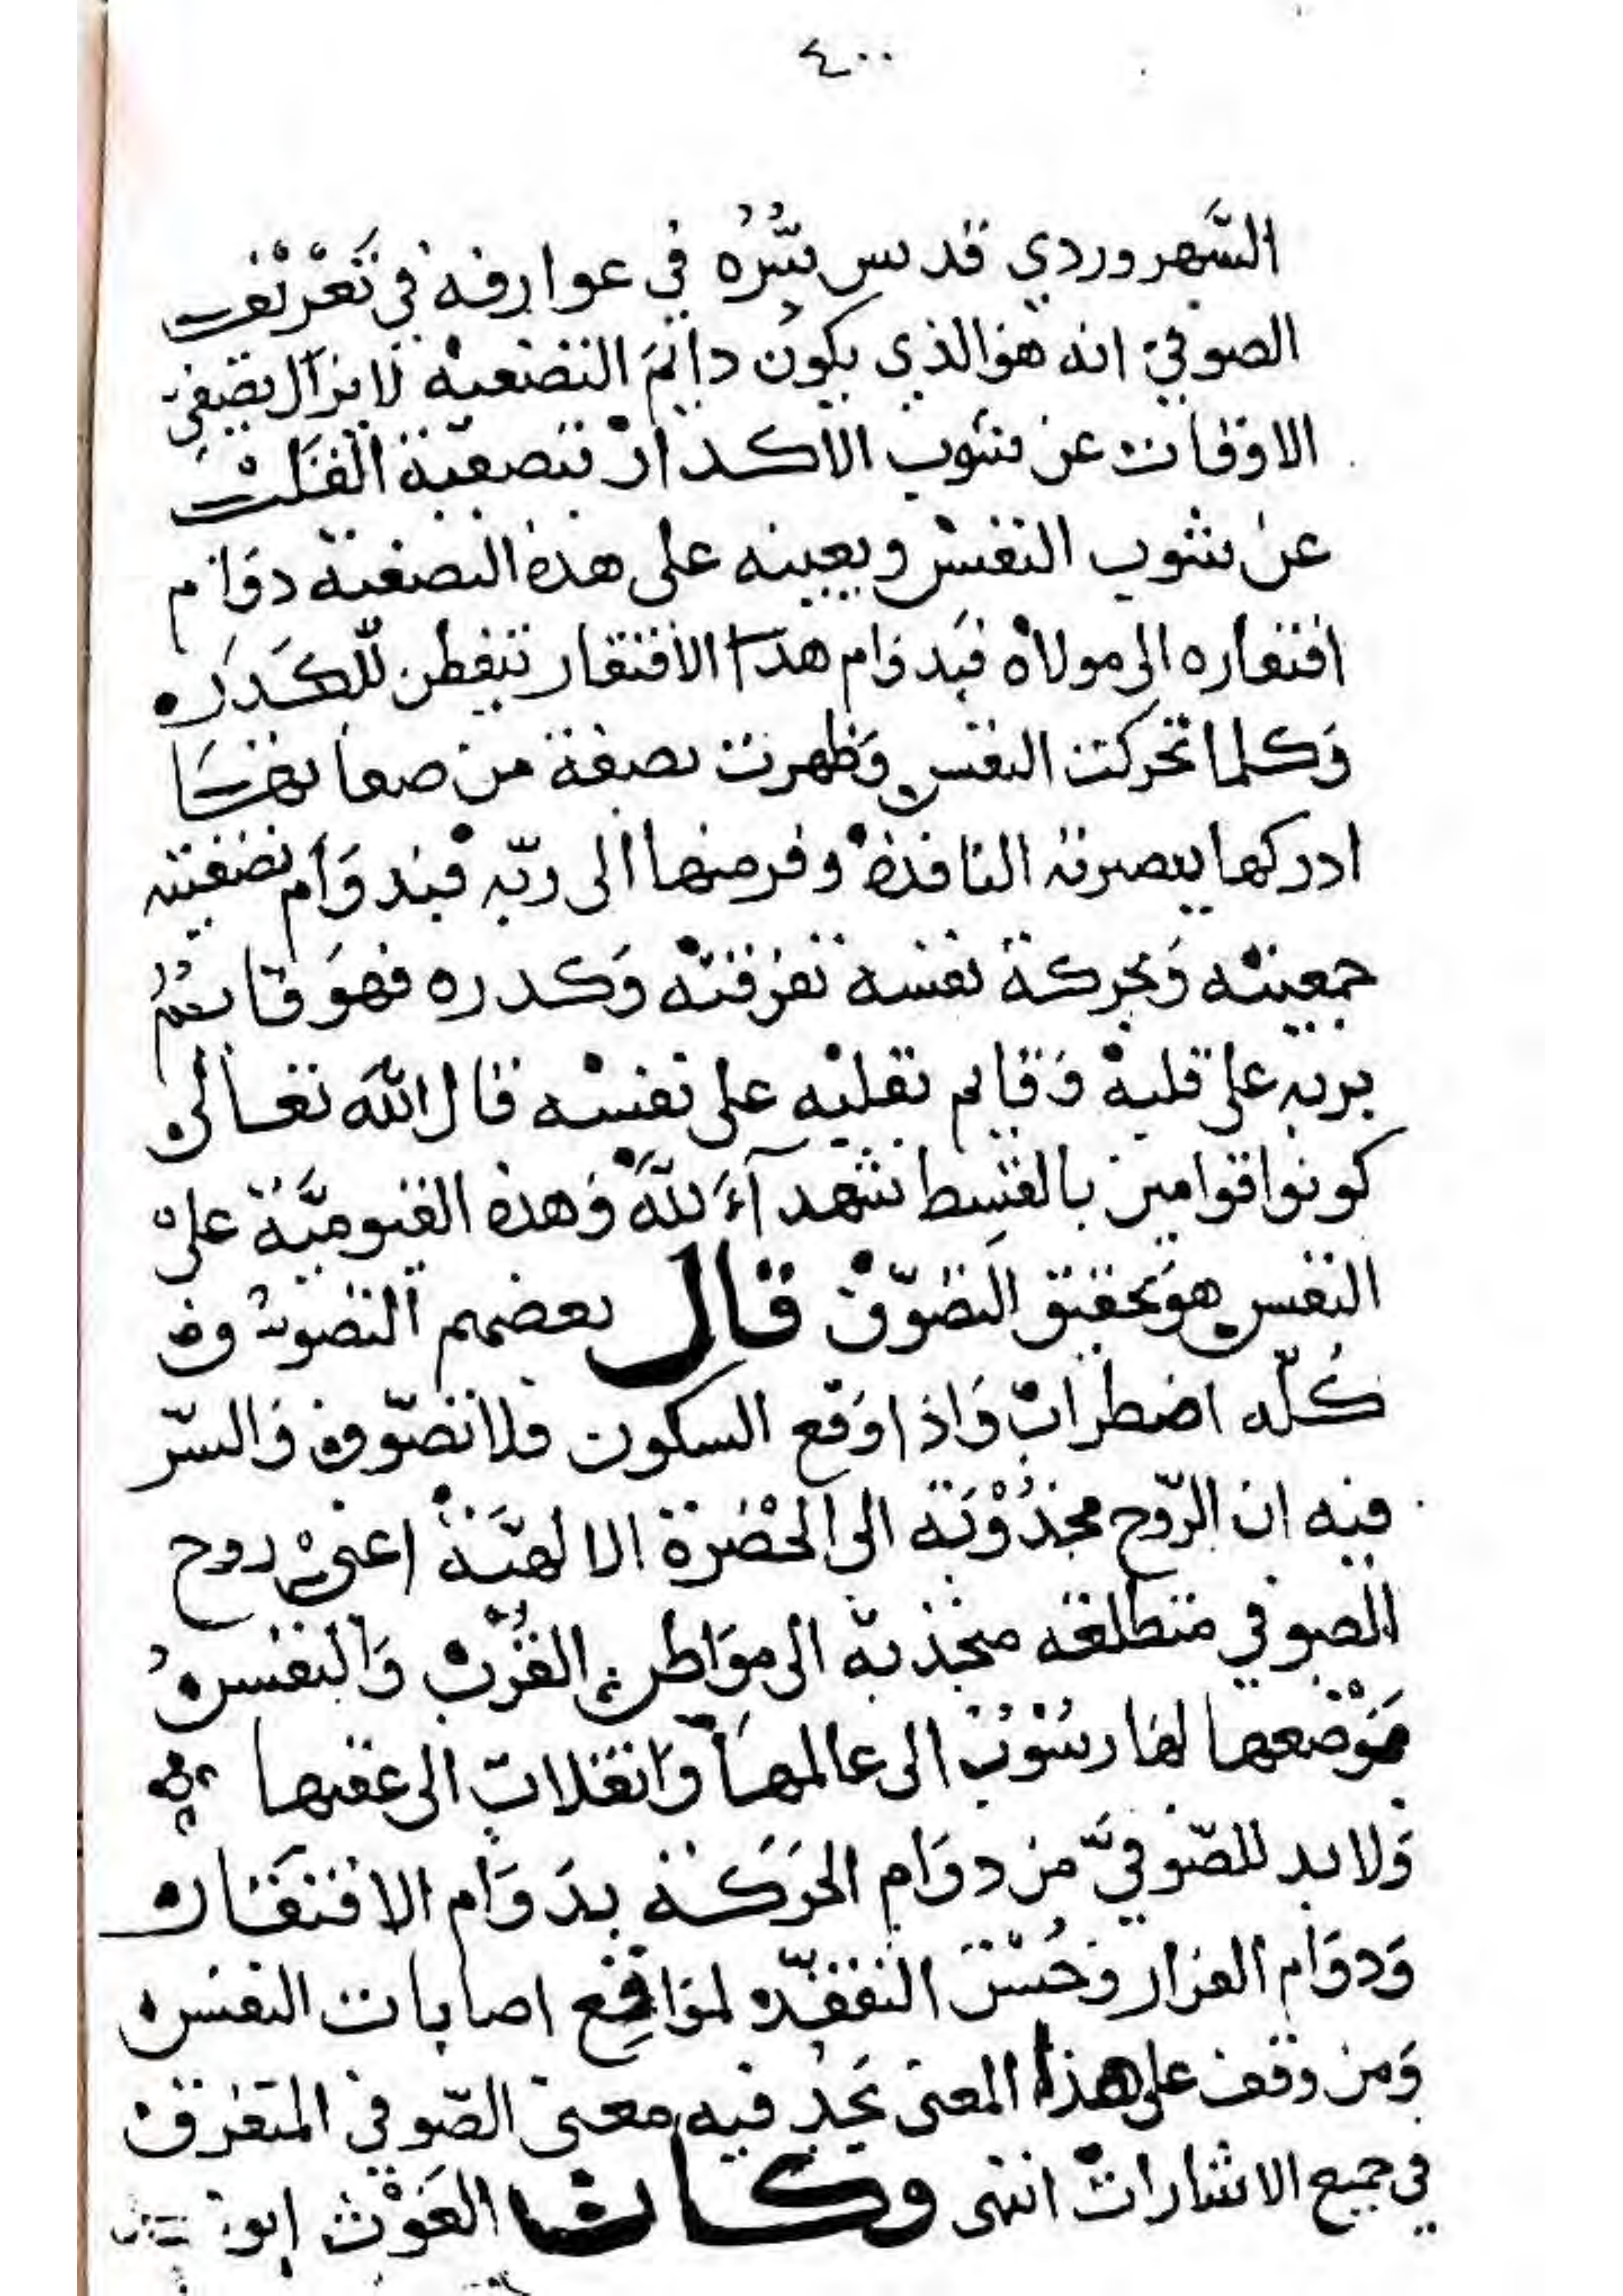 ٤٠٠
السَّهروردي قدس سِرُّهُ في عوارفه في تَعْرِيْف
الصوفي انه هو الذي يكون دايمَ التصفيه لا يزال يصفي
الاوقات عن شوب الاكدار بتصفية القلب
عن شوب النفس ويعينه على هذه التصفية دوام
افتقاره الى مولاه فبدوام هذا الافتقار يتفطن للكدر
وكلما تحركت النفس وظهرت بصفة من صفاتها
ادركها ببصيرته النافذة وفر منها الى ربّه فبدوام تصفيته
جمعيته وَبحركة نفسه تفرقته وَكدره فهوَ قايم
بربه على قلبه وَقايم بقلبه على نفسه قال الله تعالى
كونوا قوامين بالقسط شهدآءَ للهِ وَهذه القيوميَّة على
النفس هو تحقيق التصوّف قال بعضهم التصوف
كُلّه اضطراب وَاذا وَقع السكون فلا تصّوف وَالسّر
فيه ان الرّوح مجذُوْبَة الى الحضْرة الالهيَّة اعني روح
الصوفي متطلعة منجذبة الى موَاطن القُرْب وَالنفسُ
بوَضْعها لها رسُوْبٌ الى عالمها وَانقلاب الى عقبها
وَلا بد للصّوفيَّ من دوَام الحَرَكة بدَوَام الافتقار
وَدوَام الفرار وَحُسْن التفقّد لموَاقع اصابات النفس
وَمن وقف على هذا المعنى يَجد فيه معنى الصّوفي المتفرق
في جميع الاشارات انتهى وكان الغَوْث ابو